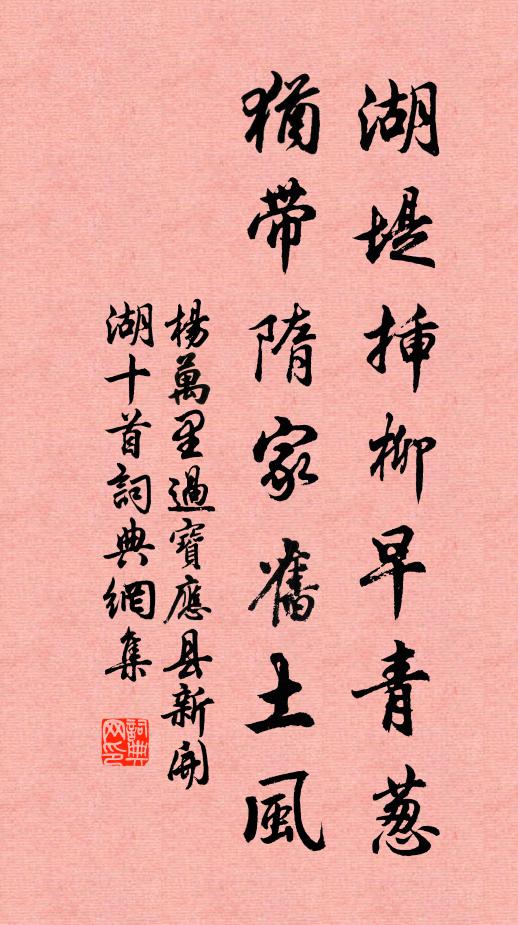 湖堤揷柳早青葱
猶帶隋家舊土風
楊萬里過寶應县新開
湖十首詞典網集
詞典网印